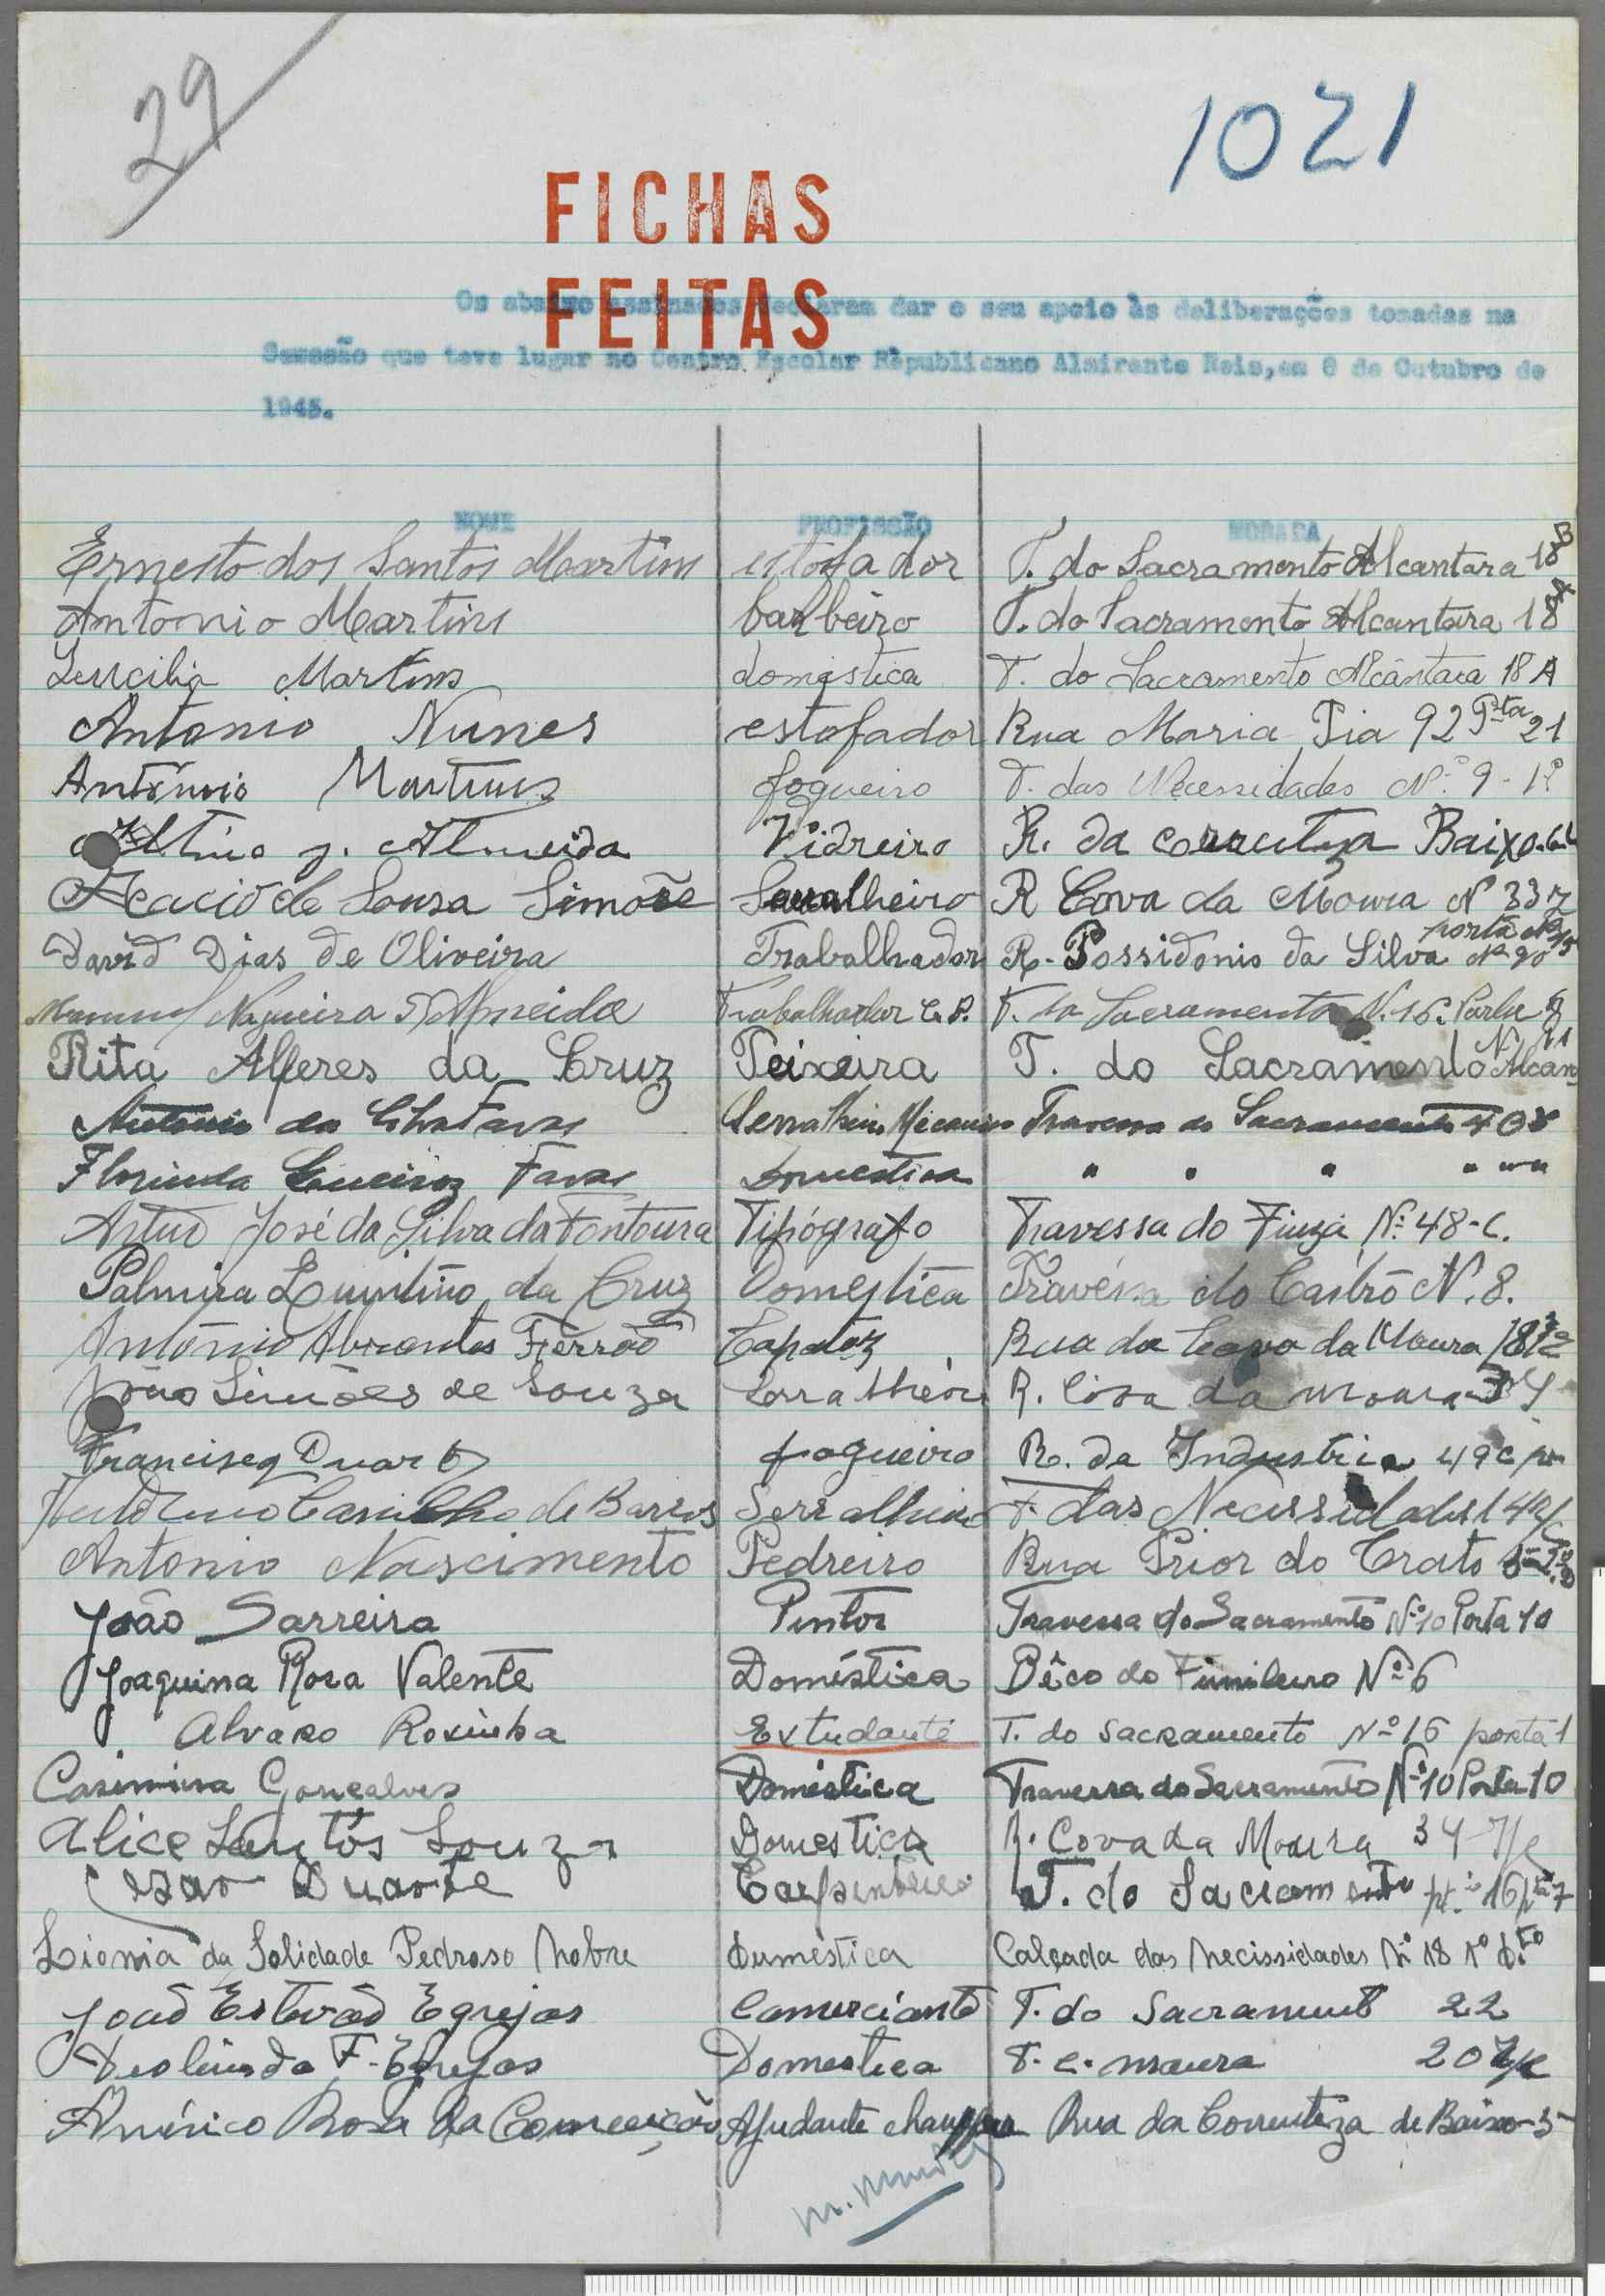 29
1021
FICHAS
FEITAS
Os abaixo assinados declaram dar o seu apoio às deliberações tomadas na
Sesssão que teve lugar no Centro Escolar Rèpublicano Almirante Reis,em 8 de Outubro de
1945.
NOME PROFISSÃO MORADA
Ernesto dos Santos Martins estofador T. do Sacramento Alcantara 18 B
Antonio Martins barbeiro T. do Sacramento Alcantara 18 A
Lucilia Martins doméstica T. do Sacramento Alcântara 18 A
Antonio Nunes estofador Rua Maria Pia 92 Pta 21
António Martins fogueiro T. das Necessidades Nº 9-1º
J. Almeida Vidreiro R. da Baixo
Acacio de Sousa Simoẽs Serralheiro R Cova da Moura Nº 33
porta Nº
David Dias de Oliveira Trabalhador R. Possidonio da Silva Nº 90
Manuel Nogueira d'Almeida Trabalhador C. P. T. do Sacramento N. 16 Porta
Rita Alferes da Cruz Teixeira T. do Sacramento Nº 11 Alcan
Antonio da Silva Favas Serralheiro Mecanico Travessa do Sacramento
Florinda Queiroz Favas Domestica " " " " " "
Artur José da Silva da Fontoura Tipógrafo Travessa do Fiuza Nº 48-C.
Palmira Quintino da Cruz Domestica Travéssa do Castro N. 8.
António Abrantes Ferrão Capataz Rua da Cova da Moura
João Simões de Souza R. Cova da Moura 34
Francisco Duarte fogueiro R. da Industria 49
Carrilho de Barros Serralheiro T. das Necessidades
Antonio Nascimento Pedreiro Rua Prior do Crato
João Sarreira Pintor Travessa do Sacramento Nº 10 Porta 10
Joaquina Rosa Valente Doméstica Bêco do Funileiro Nº 6
Alvaro Rosinha Extudante T. do Sacramento Nº 16 porta 1
Casimira Gonçalves Doméstica Travessa do Sacramento Nº 10 Porta 10
Alice Santos Souza Domestica R. Cova da Moura 34 r/c
Duarte Carpinteiro T. do Sacramento 16 7
Lionia da Solidade Pedroso Nobre Duméstica Calçada das Necissidades Nº 18 1º D.to
João Estevão Egrejas Comerciante T. do Sacrament 22
Deolinda F. Egrejas Domestica T. C. Moura 20 r/c
Américo Rosa da Conceição Ajudante chauffeur Rua da Correnteza de Baixo-5